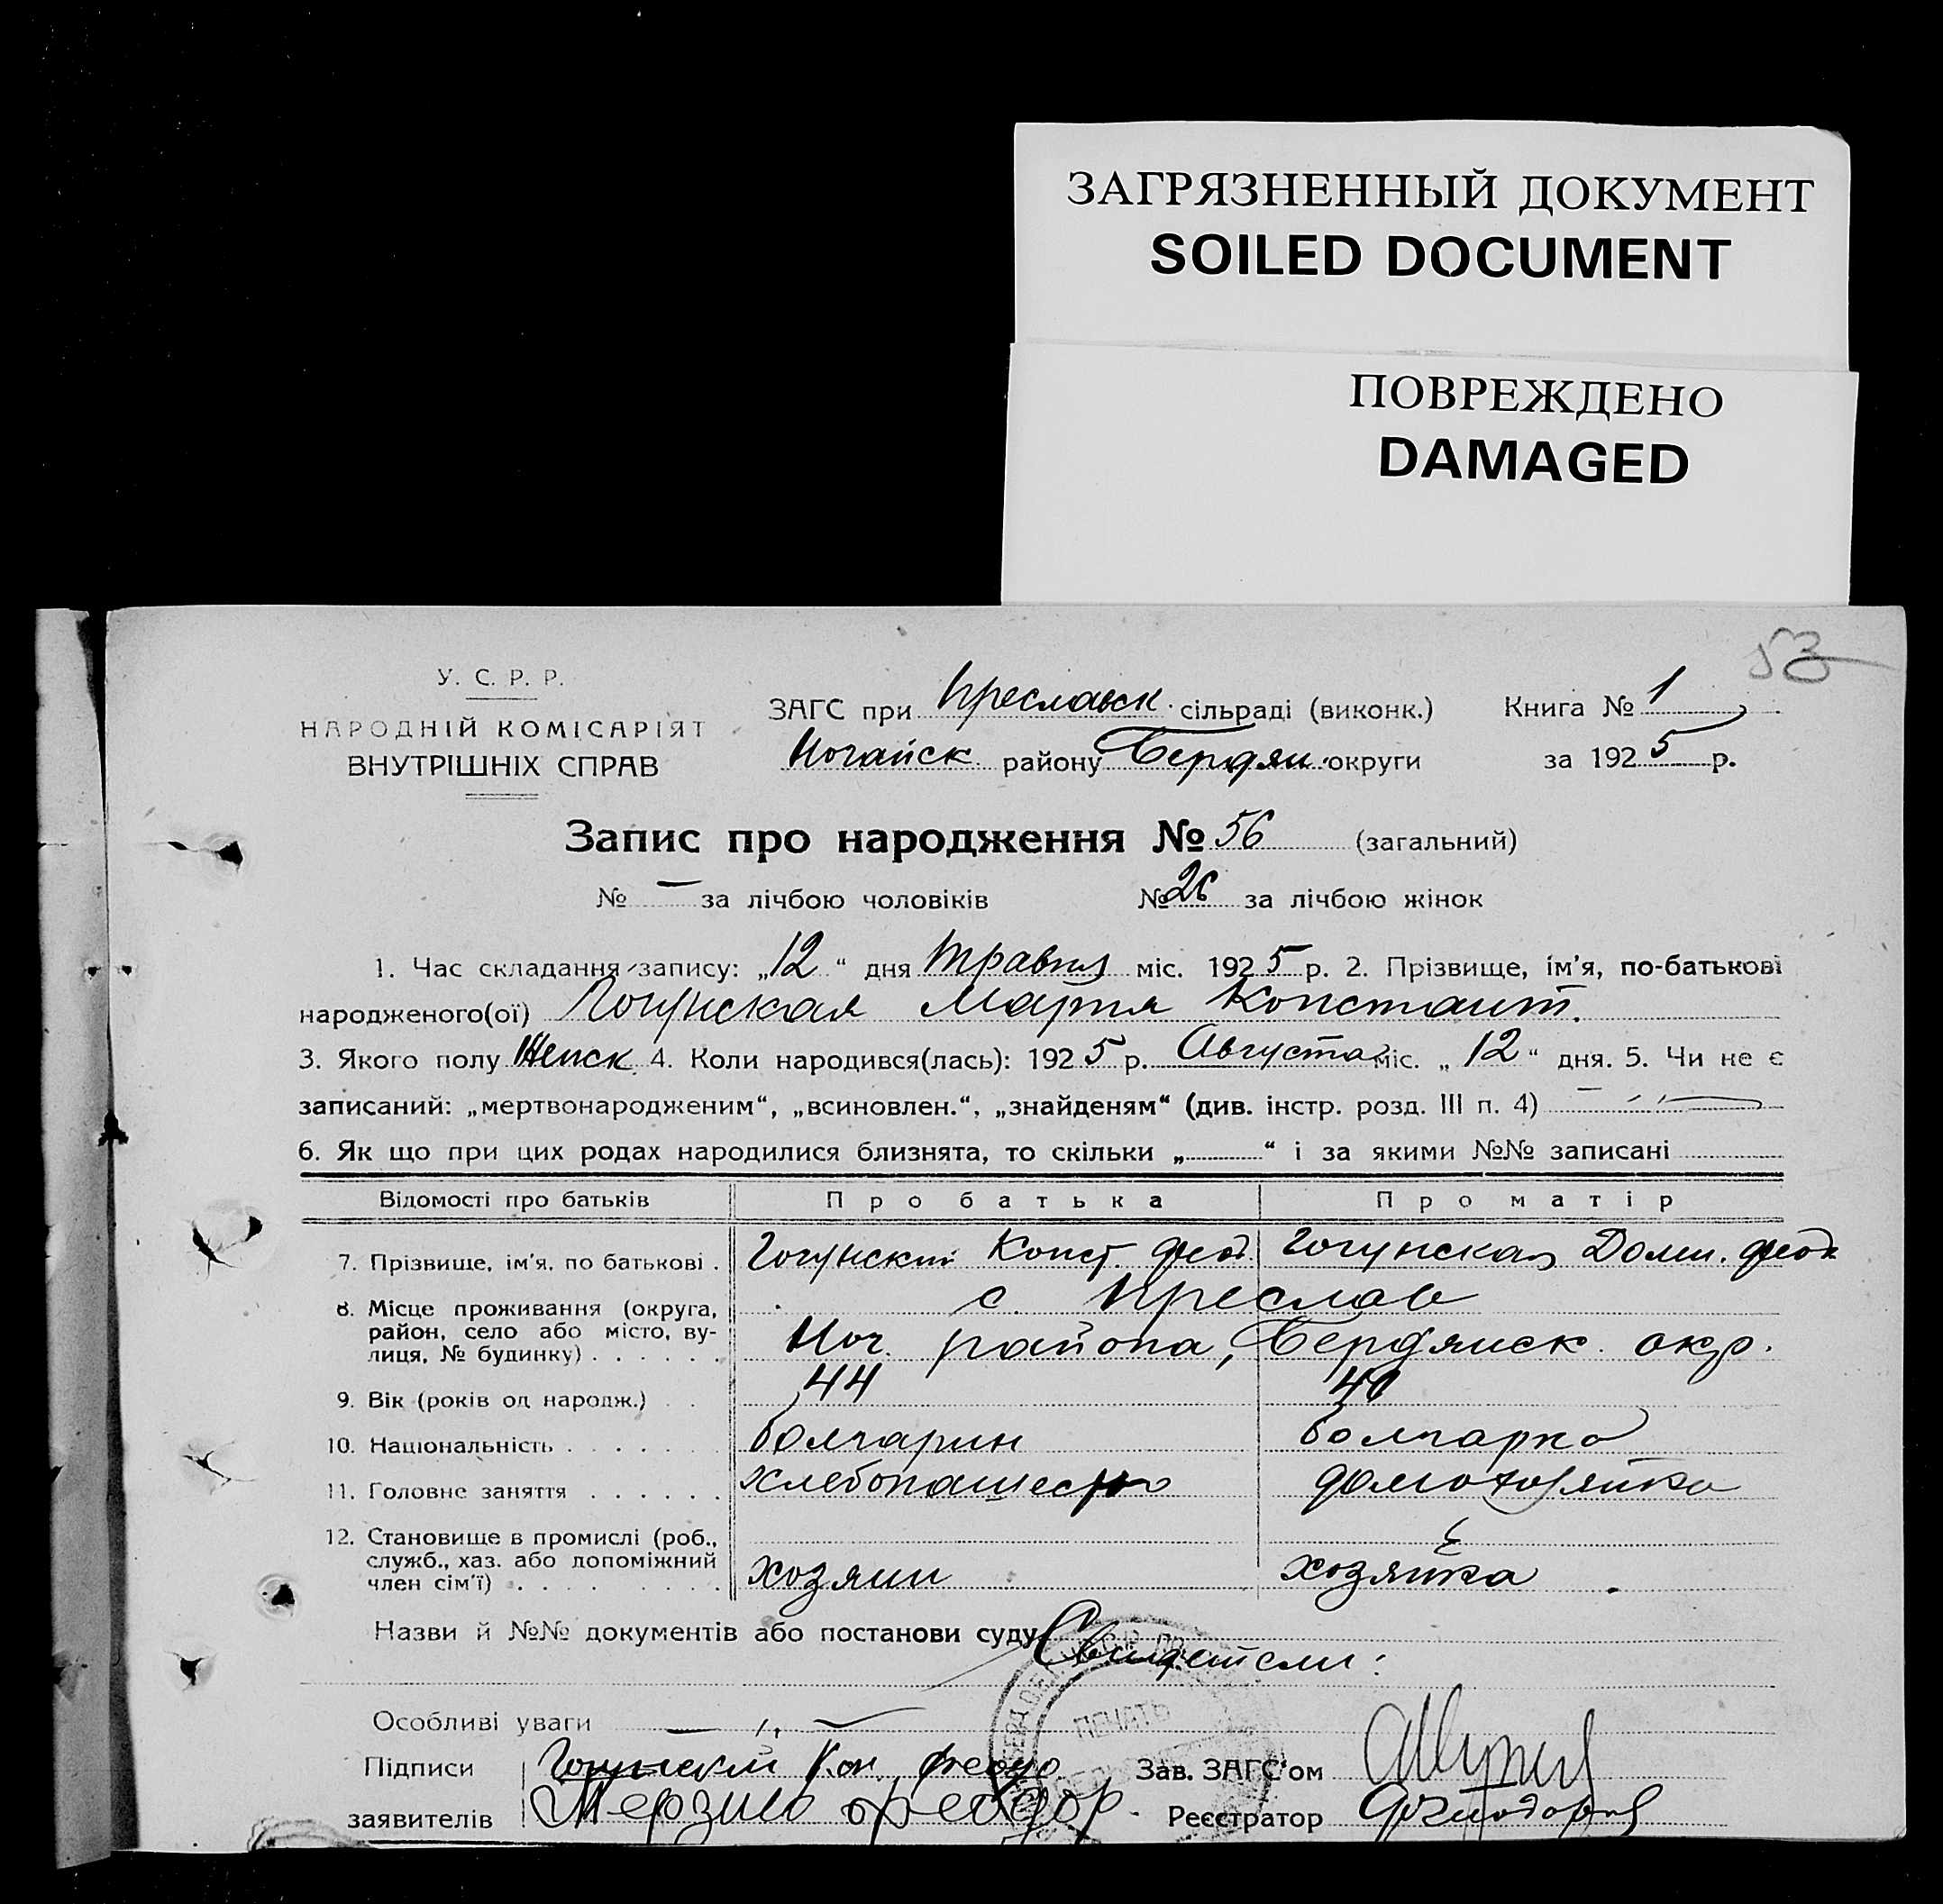 ЗАГРЯЗНЕННЫЙ ДОКУМЕНТ
SOILED DOCUMENT
ПОВРЕЖДЕНО
DAMAGED
53
У. С. Р. Р.
НАРОДНІЙ КОМІСАРІЯТ
ВНУТРІШНІХ СПРАВ
ЗАГС при Преславск. сільраді (виконк.) Книга № 1
Ногайск району Бердян. округи за 1925 р.
Запис про народження № 56 (загальний)
№ — за лічбою чоловіків № 26 за лічбою жінок
1. Час складання запису: „12“ дня Травня міс. 1925 р. 2. Прізвище, ім'я, по-батькові
народженого(ої) Гогунская Мария Констант.
3. Якого полу Женск. 4. Коли народився(лась): 1925 р. Августа міс. „12“ дня. 5. Чи не є
записаний: „мертвонародженим“, „всиновлен.“, „знайденям“ (див. інстр. розд. III п. 4) — „ —
6. Як що при цих родах народилися близнята, то скільки „ “ і за якими №№ записані
Відомості про батьків Про батька Про матір
7. Прізвище, ім'я, по батькові . Гогунский Конст. Феод. Гогунская Домн. Феод
8. Місце проживання (округа, с. Преслав
район, село або місто, ву-
лиця, № будинку) . . . . . . Ног. района, Бердянск. окр.
9. Вік (років од народж.) . . 44 40
10. Національність . . . . . . . болгарин болгарка
11. Головне заняття . . . . . . хлебопашество домохозяйка
12. Становище в промислі (роб.,
служб., хаз. або допоміжний
член сім'ї) . . . . . . . . хозяин хозяйка
Назви й №№ документів або постанови суду Свидетели:
ПЕЧАТЬ
Особливі уваги — „ —
Підписи Гогунский Кон. Феодо Зав. ЗАГС'ом
заявителів Феодор Реєстратор